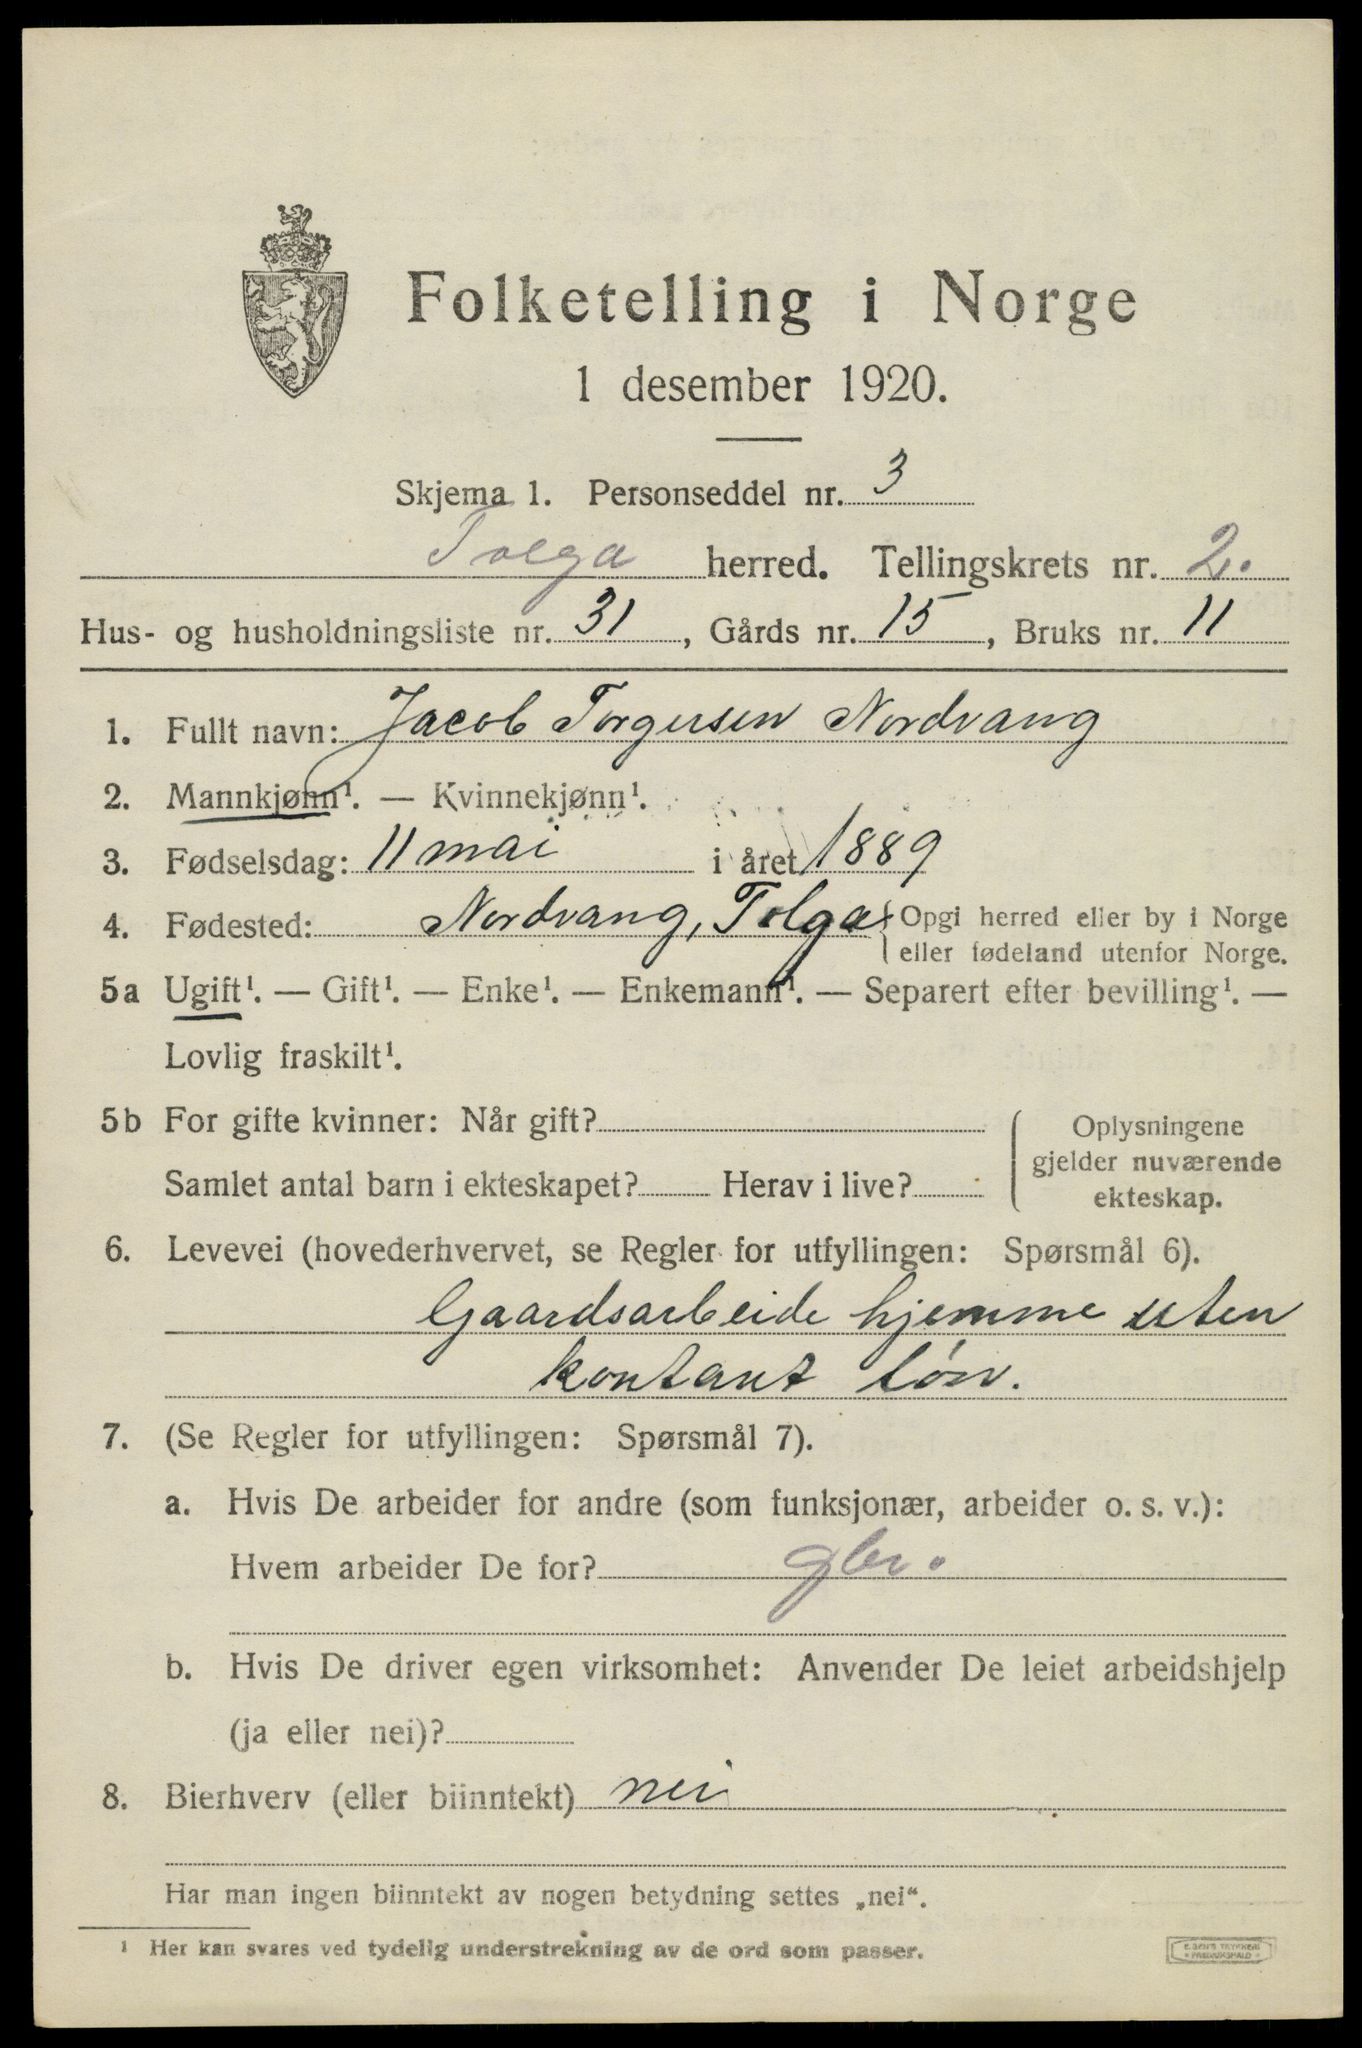 Folketelling i Norge
1 desember 1920.
Skjema 1. Personseddel nr. 3
Tolga herred. Tellingskrets nr. 2.
Hus- og husholdningsliste nr. 31, Gårds nr. 15, Bruks nr. 11
1. Fullt navn: Jacob Torgersen Nordvang
2. Mannkjønn¹. — Kvinnekjønn¹.
3. Fødselsdag: 11 mai i året 1889
4. Fødested: Nordvang, Tolga { Opgi herred eller by i Norge
eller fødeland utenfor Norge.
5a Ugift¹. — Gift¹. — Enke¹. — Enkemann¹. — Separert efter bevilling¹. —
Lovlig fraskilt¹.
5b For gifte kvinner: Når gift?
Samlet antal barn i ekteskapet? Herav i live?
Oplysningene
gjelder nuværende
ekteskap.
6. Levevei (hovederhvervet, se Regler for utfyllingen: Spørsmål 6).
Gaardsarbeide hjemme uten
kontant lön.
7. (Se Regler for utfyllingen: Spørsmål 7).
a. Hvis De arbeider for andre (som funksjonær, arbeider o. s. v.):
Hvem arbeider De for? gbr.
b. Hvis De driver egen virksomhet: Anvender De leiet arbeidshjelp
(ja eller nei)?
8. Bierhverv (eller biinntekt) nei
Har man ingen biinntekt av nogen betydning settes „nei“.
¹ Her kan svares ved tydelig understrekning av de ord som passer.